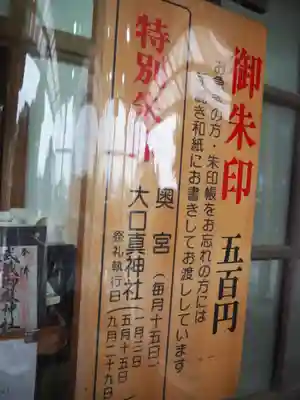 御朱印 五百円
の方・朱印帳をお忘れの方には
き和紙にお書きしてお渡ししています
特別
奥宮 (毎月十五日)
大口真神社 一月三日
祭礼執行日 五月十五日
九月二十九日
神社